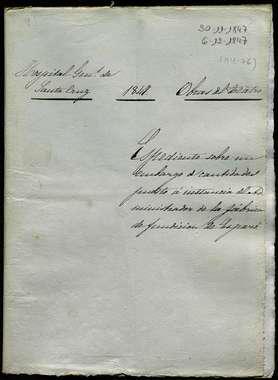 30-11-1847
6-12-1847
Hospital Gen.l de
Santa Cruz
1848
Obras del
Espediente sobre un
embargo de cantidades
puesto á instancia del Ad
ministrador de la fábrica
de fundicion de